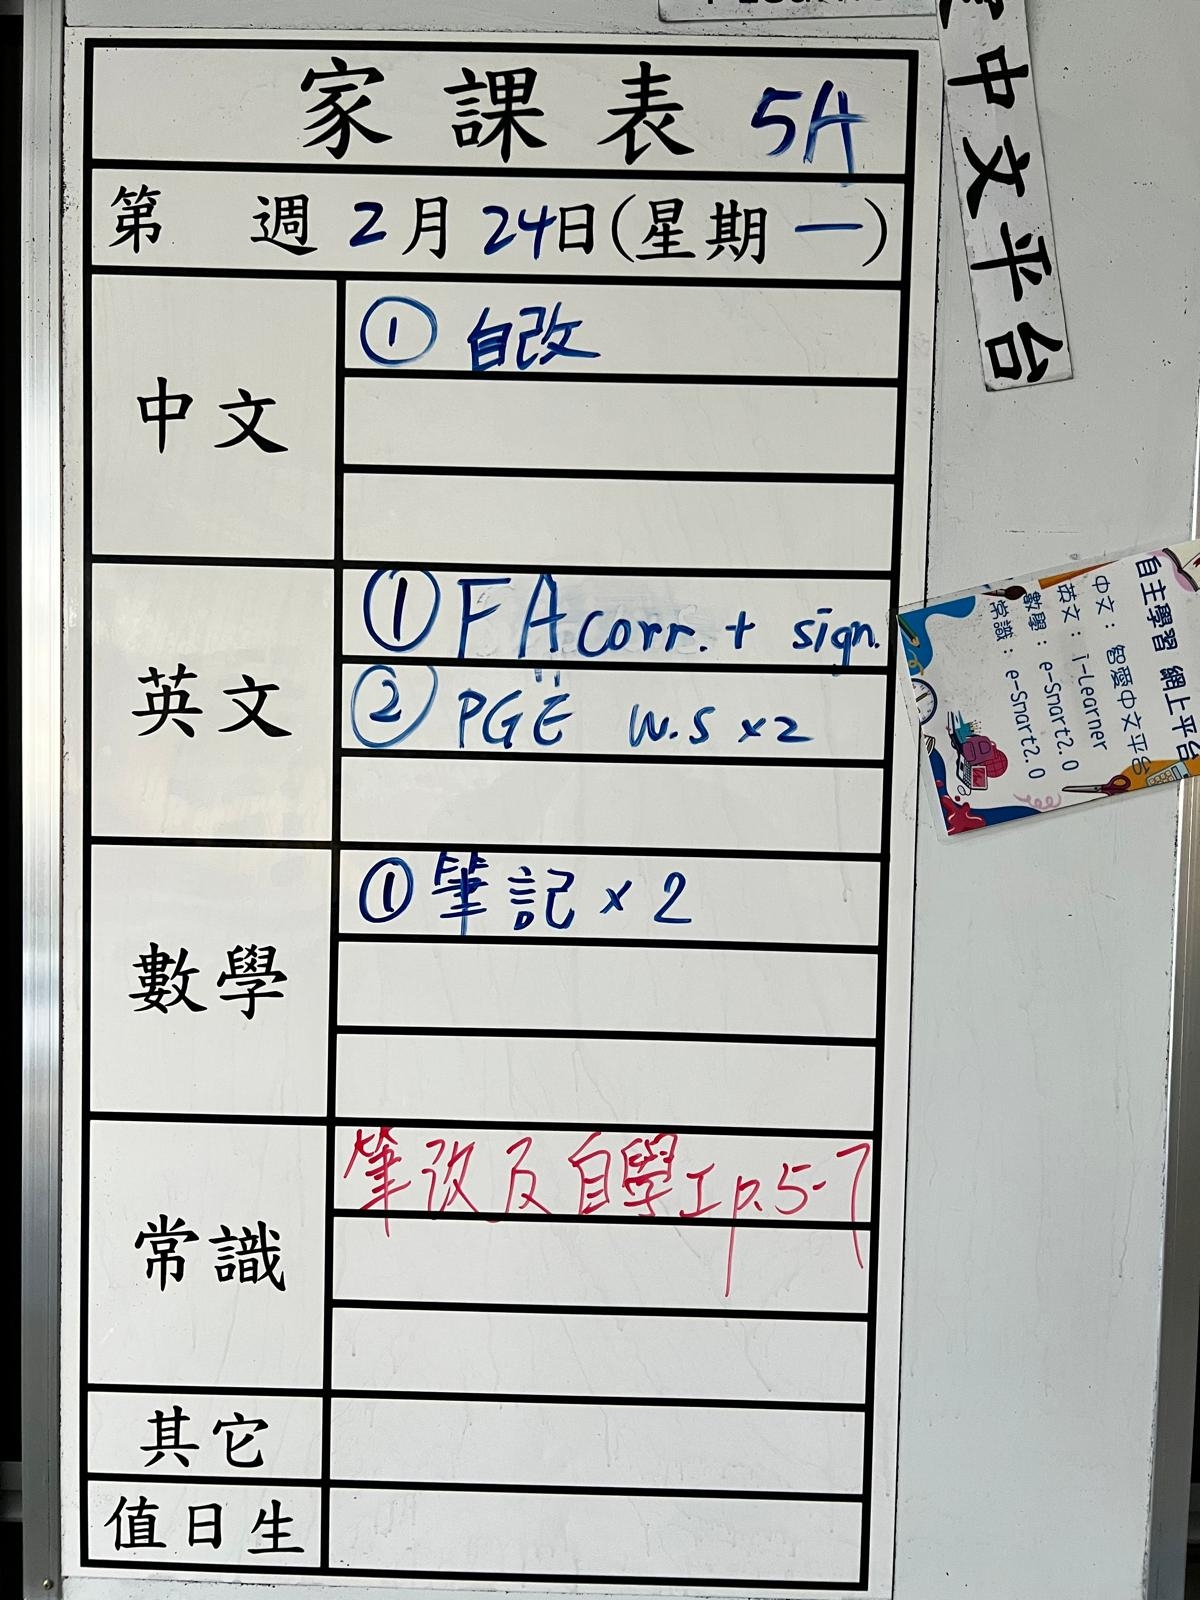 家課表 5A
第 週 2月24日(星期一)
中文
① 自改
英文
① FA corr. + sign.
② PGE W.S x2
數學
① 筆記 x 2
常識
筆改及自學工p.5-7
其它
值日生
中文平台
自主學習 網上平台
中文：智愛中文平台
英文：i-Learner
數學：e-Smart2.0
常識：e-Smart2.0